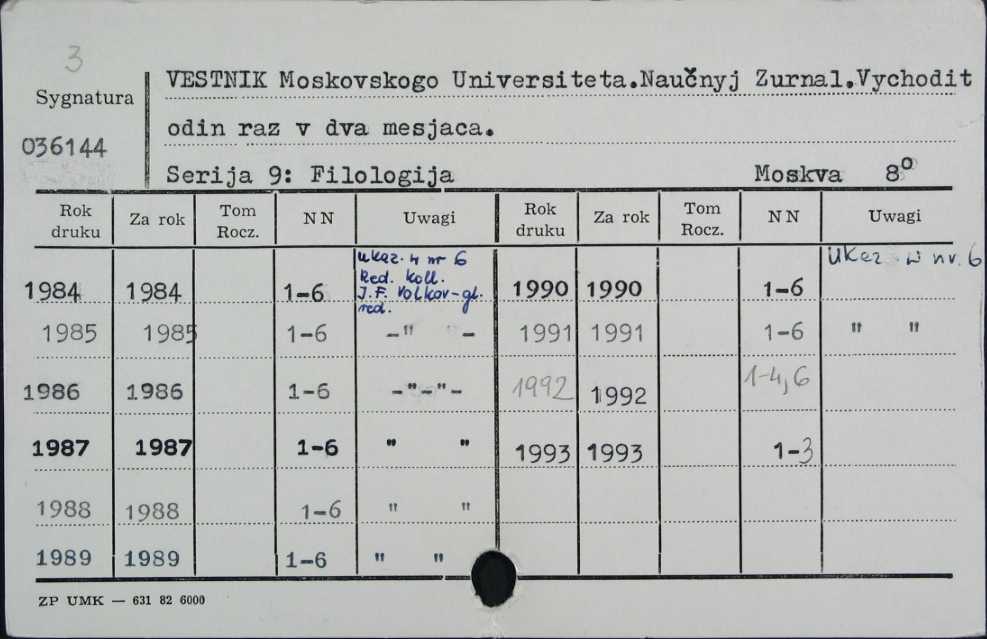 3
VESTNIK Moskovskogo Universiteta.Naučnyj Zurnal.Vychodit
Sygnatura
odin raz v dva mesjaca.
036144
Serija 9: Filologija Moskva 8°
Rok druku Za rok Tom Rocz. NN Uwagi Rok druku Za rok Tom Rocz. NN Uwagi
1984 1984 1-6 Ukaz. w nr 6 Red. koll. I.F. Volkov-gl. red. 1990 1990 1-6 Ukaz. w nr. 6
1985 1985 1-6 -" "- 1991 1991 1-6 " "
1986 1986 1-6 -"-"- 1992 1992 1-4,6
1987 1987 1-6 " " 1993 1993 1-3
1988 1988 1-6 " "
1989 1989 1-6 " "
ZP UMK — 631 82 6000